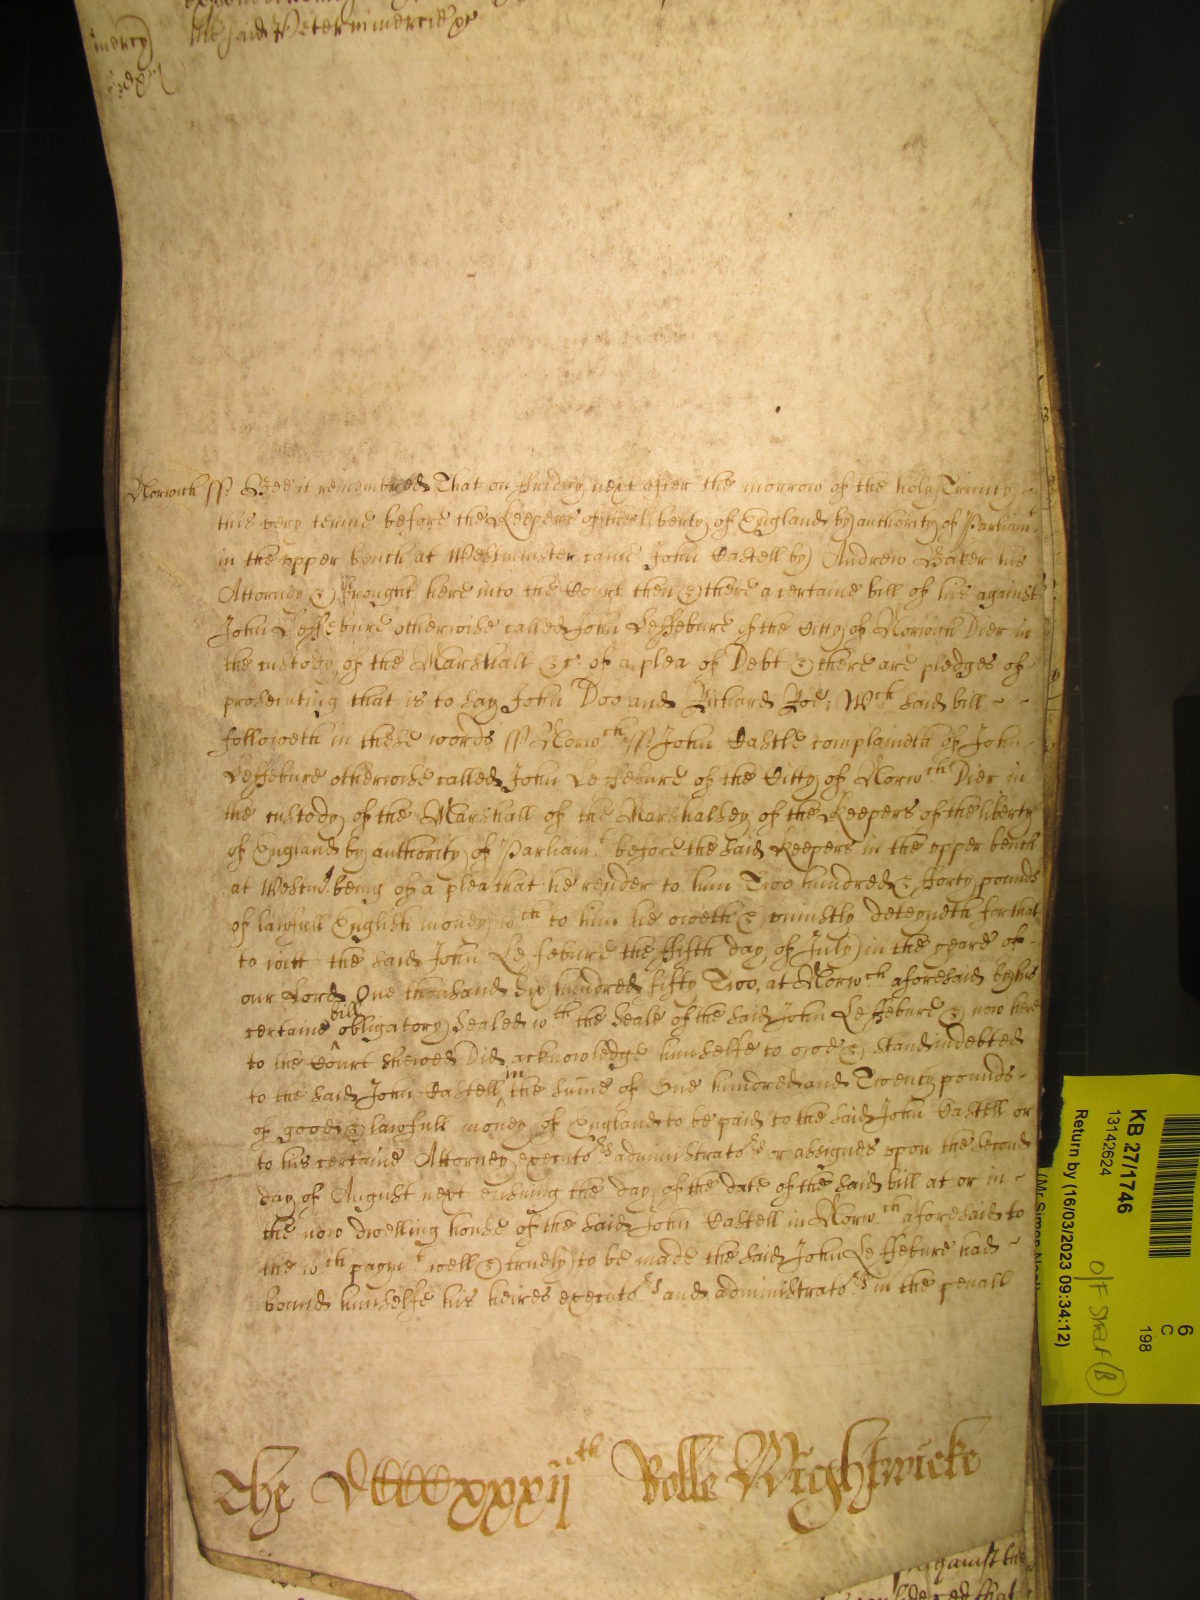 mercy the said Peter in mercie &c
Norwich ss. Bee it remembred That on Friday next after the morrow of the holy Trinity
this very terme before the Keepers of the liberty of England by authority of Parliamt
in the upper bench at Westminster came John Castell by Andrew Baker his
Attorney & brought here into the Court then & there a certaine bill of his against
John Le ffebure otherwise called John Le ffebure of the Citty of Norwich Dier in
the custody of the Marshall &c. of a plea of Debt & there are pledges of
prosecuting that is to say John Doo and Richard Roe: Wch said bill
followeth in these words ss Norwch ss. John Castle complaineth of John
Le ffebure otherwise called John Le ffebure of the Citty of Norwch Dier in
the custody of the Marshall of the Marshalsey of the Keepers of the liberty
of England by authority of Parliamt before the said Keepers in the upper bench
at Westmr being of a plea that he render to him Two hundred & forty pounds
of lawfull English money wch to him he oweth & uniustly deteyneth for that
to witt the said John Le febure the ffifth day of July in the yeare of
our Lord One thousand Six hundred fifty Two, at Norwch aforesaid by his
certaine bill obligatory Sealed wth the Seale of the said John Le ffebure & now here
to the Court shewed Did acknowledge himselfe to owe & stand indebted
to the said John Castell in the sume of One hundred and Twenty pounds
of good & lawfull money of England to be paid to the said John Castell or
to his certaine Attorney executors administrators or assignes upon the second
day of August next ensuing the day of the date of the said bill at or in
the now dwelling house of the said John Castell in Norwch aforesaid to
the wch paymt well & truely to be made the said John Le ffebure had
bound himselfe his heires executors and administrators in the penall
The DCCCCxxxijth Rolle Wightwicke
against the
KB 27/1746
13142624
Return by (16/03/2023 09:34:12)
6
C
198